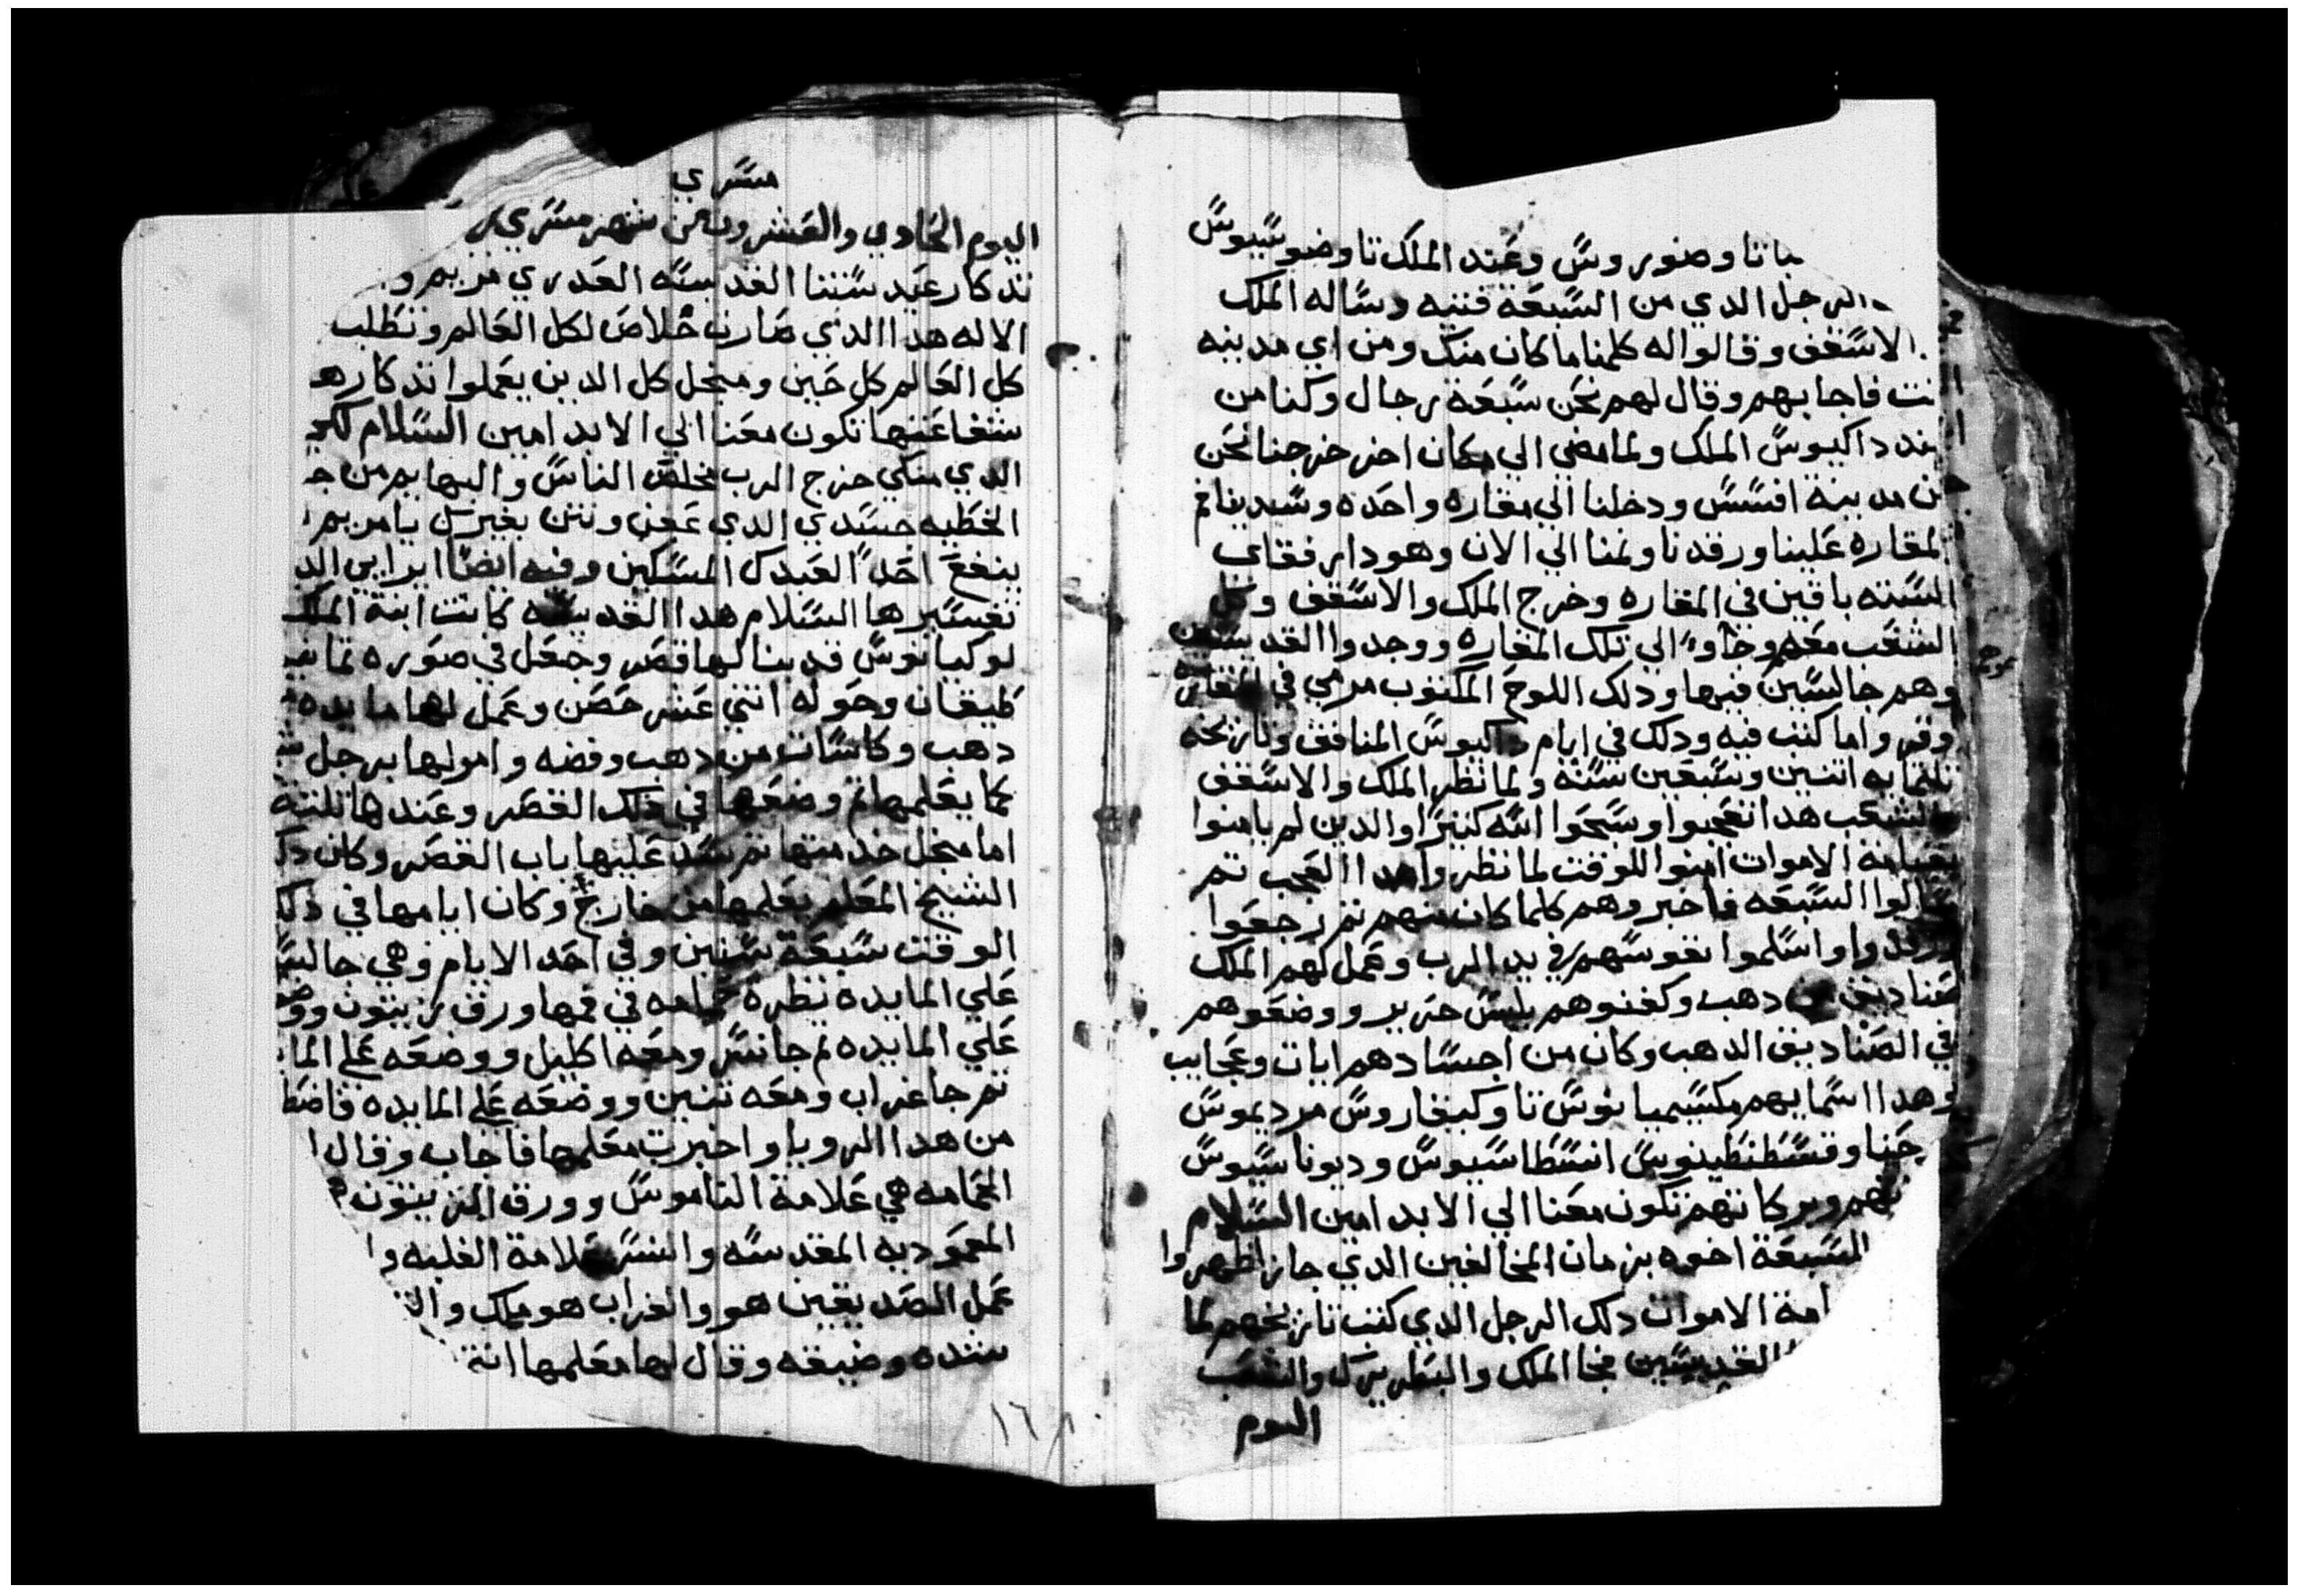 تاوضوروس وعند الملك تاوضوسيوس
الرجل الدي من السبعة فتيه وساله الملك
الاسقف وقالوا له كلمنا ما كان منك ومن اي مدينه
نت فاجابهم وقال لهم نحن سبعة رجال وكنا من
ند داكيوس الملك ولما مضي الي مكان اخر خرجنا نحن
ن مدينة افسس ودخلنا الي مغاره واحده وسد بنا فم
لمغاره علينا ورقدنا ونمنا الي الان وهودا رفقاي
الستة باقين في المغاره وخرج الملك والاسقف وكل
الشعب معهم وجاوا الي تلك المغاره ووجدوا القديسين
وهم جالسين فيها ودلك اللوح المكتوب مرمي في المغاره
وقروا ما كتب فيه ودلك في ايام داكيوس المنافق وتاريخه
تلتمايه اتنين وسبعين سنه ولما نظر الملك والاسقف
والشعب هدا تعجبوا وسبحوا الله كتيرا والدين لم يامنوا
بقيامة الاموات امنوا للوقت لما نظروا هدا العجب تم
سالوا السبعه فاخبروهم كلما كان منهم تم رجعوا
ورقدوا واسلموا نفوسهم في يد الرب وعمل لهم الملك
صناديق من دهب وكفنوهم بلبس حرير ووضعوهم
في الصناديق الدهب وكان من اجسادهم ايات وعجايب
وهدا اسمايهم مكسيميانوس تاوكيفاروس مرديموس
حنا وقسطنطينوس انسطاسيوس وديوناسيوس
تهم وبركاتهم تكون معنا الي الابد امين السلام
السبعة اخوه بزمان المخالفين الدي جاز اظهروا
امة الاموات دلك الرجل الدي كتب تاريخهم لما
القديسين فجا الملك والبطريرك والشعب
اليوم
مسري
اليوم الحادي والعشرون من شهر مسري
تدكار عيد ستنا القديسه العدري مريم و
الاله هدا الدي صارت خلاص لكل العالم وتطلب
كل العالم كل حين ومنجل كل الدين يعملوا تدكارها
شفاعتها تكون معنا الي الابد امين السلام لكي
الدي منكي خرج الرب مخلص الناس والبهايم من
الخطيه جسدي الدي عفن ونتن بغير سل يا مريم
ينفع احدا العبدك المسكين وفيه ايضا ايرايي الد
تفسيرها السلام هدا القديسه كانت ابنة الملك
لوكيانوس قد بنا لها قصر وجعل في صوره تمانيه
طيقان وحوله اتني عشر حصن وعمل لها مايده
دهب وكاسات من دهب وفضه وامر لها برجل
كما يعلمها تم وضعها في دلك القصر وعندها تلتة
اما منجل خدمتها تم سد عليها باب القصر وكان دلك
الشيخ المعلم يعلمها من خارج وكان ايامها في دلك
الوقت سبعة سنين وفي احد الايام وهي جالسه
علي المايده نظرة حمامه في فمها ورق زيتون ووضع
علي المايده تم جا نسر ومعه اكليل ووضعه علي الما
تم جا غراب ومعه تنين ووضعه علي المايده فاضط
من هدا الرويا واخبرت معلمها فاجاب وقال
الحمامه هي علامة الناموس وورق الزيتون
المعموديه المقدسه والنسر علامة الغلبه و
عمل الصديقين هو والغراب هو ملك وال
شده وضيقه وقال لها معلمها انة
١٦٨